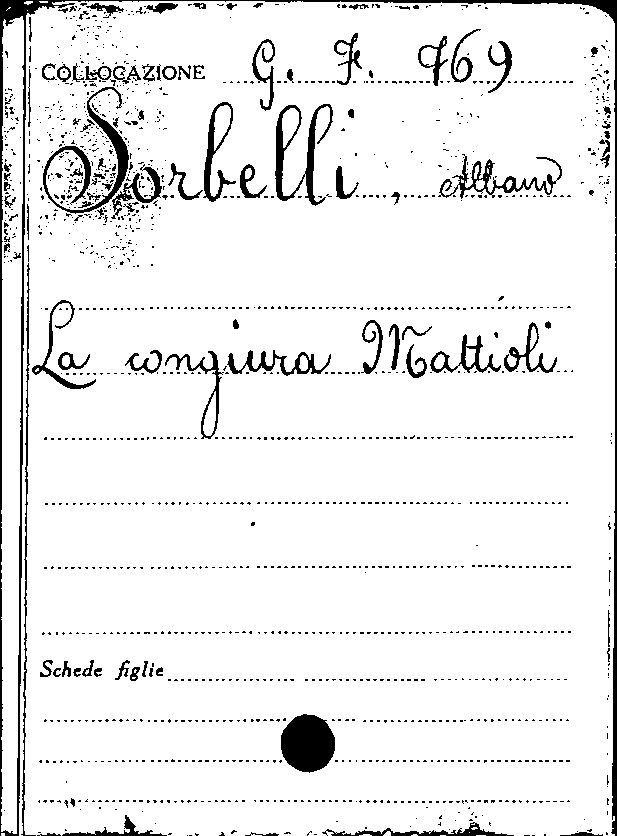 COLLOCAZIONE G. F. 469
Sorbelli, Albano
La congiura Mattioli
Schede figlie